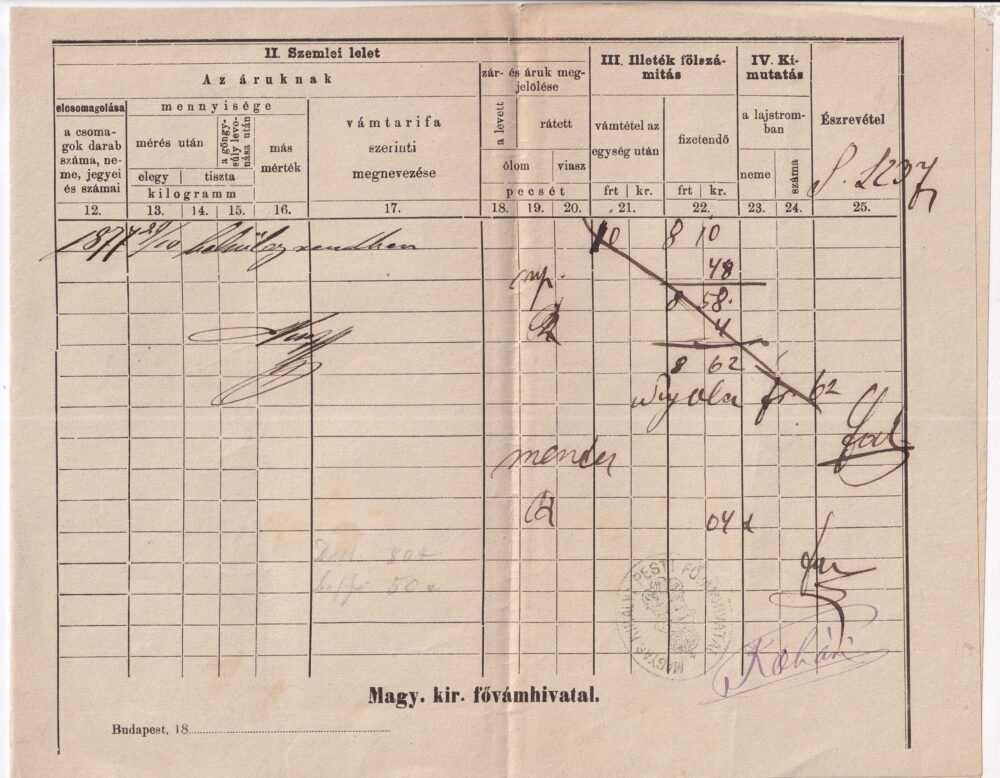 II. Szemlei lelet
III. Illeték fölszá-
mitás
IV. Ki-
mutatás
Az áruknak
zár- és áruk meg-
jelölése
Észrevétel
elcsomagolása
mennyisége
vámtarifa
szerinti
megnevezése
a csoma-
gok darab
száma, ne-
me, jegyei
és számai
mérés után
a göngy-
súly levo-
nása után
más
mérték
elegy
tiszta
kilogramm
a levett
rátett
ólom
viasz
pecsét
vámtétel az
egység után
fizetendő
frt
kr.
frt
kr.
a lajstrom-
ban
neme
száma
12.
13.
14.
15.
16.
17.
18.
19.
20.
21.
22.
23.
24.
25.
1237
1877 29/10
rendben
10
8 10
48
8 58.
4
8 62
62
04
80
50
MAGYAR KIRÁLYI PESTI FŐVÁMHIVATAL
Kohári
Magy. kir. fővámhivatal.
Budapest, 18